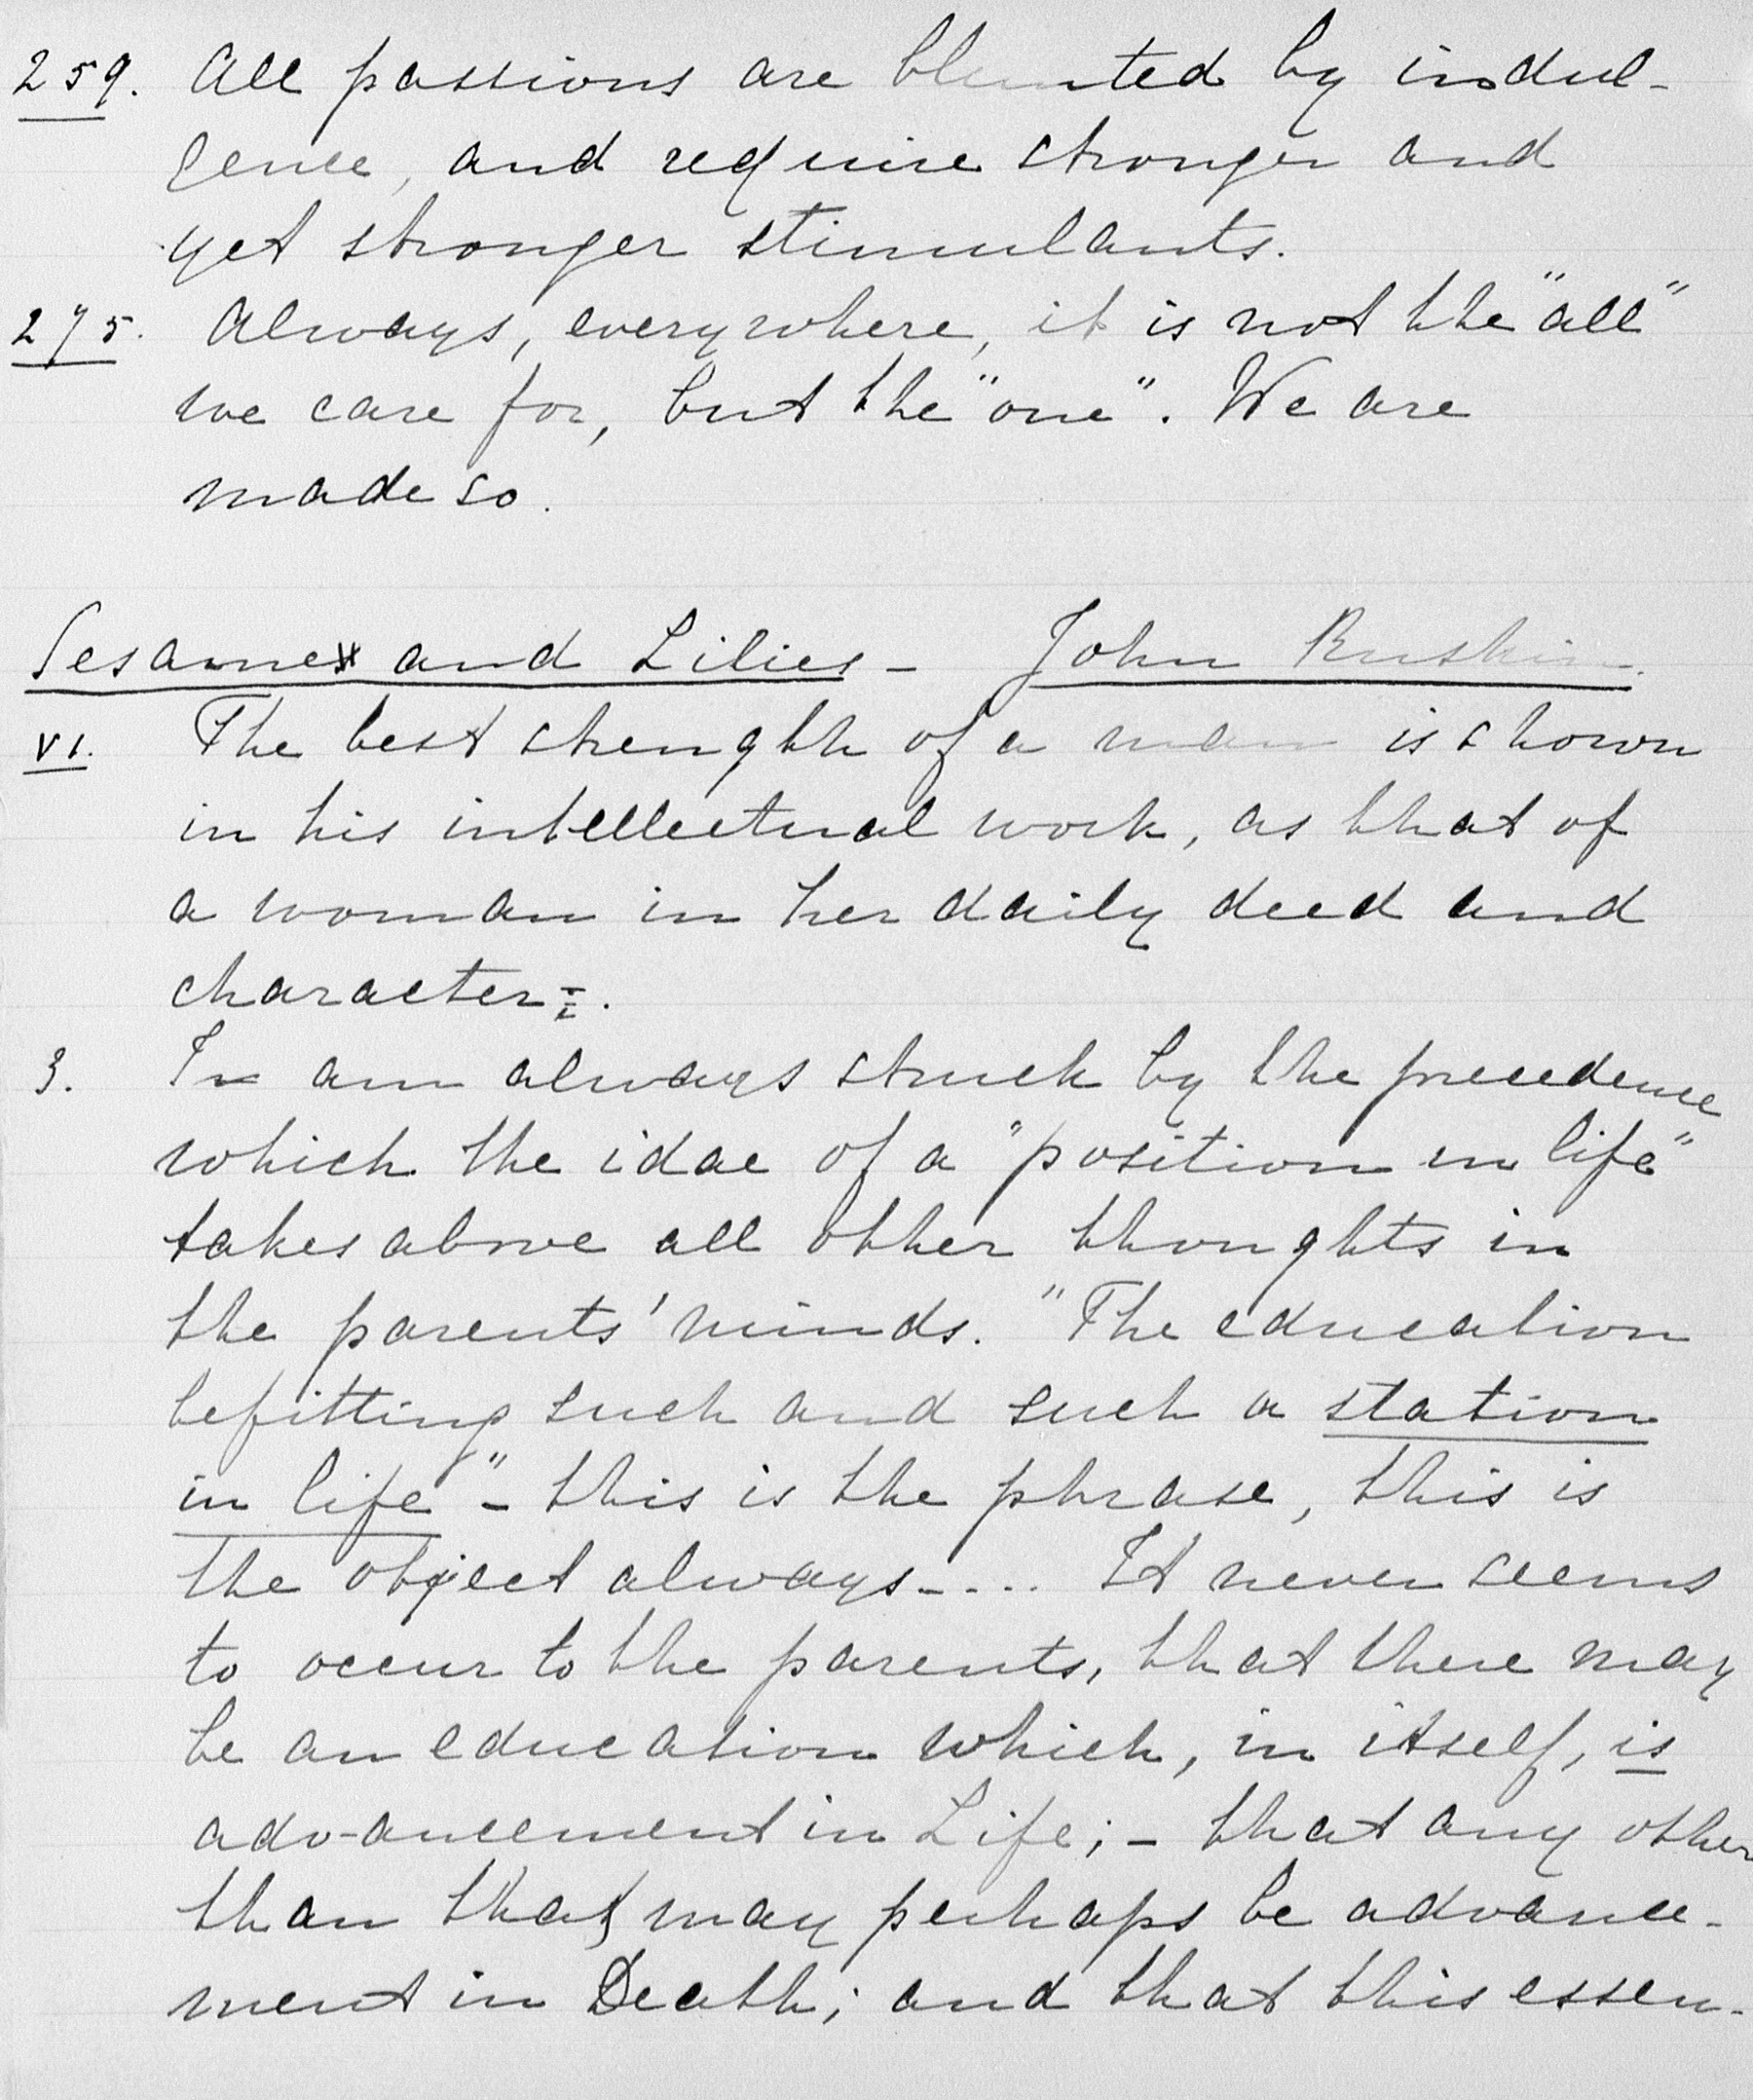 259. All passions are blunted by indul-
gence, and require stronger and
yet stronger stimulants.
275. Always, everywhere, it is not the "all"
we care for, but the "one". We are
made so.
Sesames and Lilies - John Ruskin.
VI. The best strength of a man is shown
in his intellectual work, as that of
a woman in her daily deed and
character.
3. I am always struck by the precedence
which the idae of a "position in life"
takes above all other thoughts in
the parents' minds. "The education
befitting such and such a station
in life" - this is the phrase, this is
the object always .... It never seems
to occur to the parents, that there may
be an education which, in itself, is
advancement in Life; - that any other
than that may perhaps be advance-
ment in Death; and that this essen-